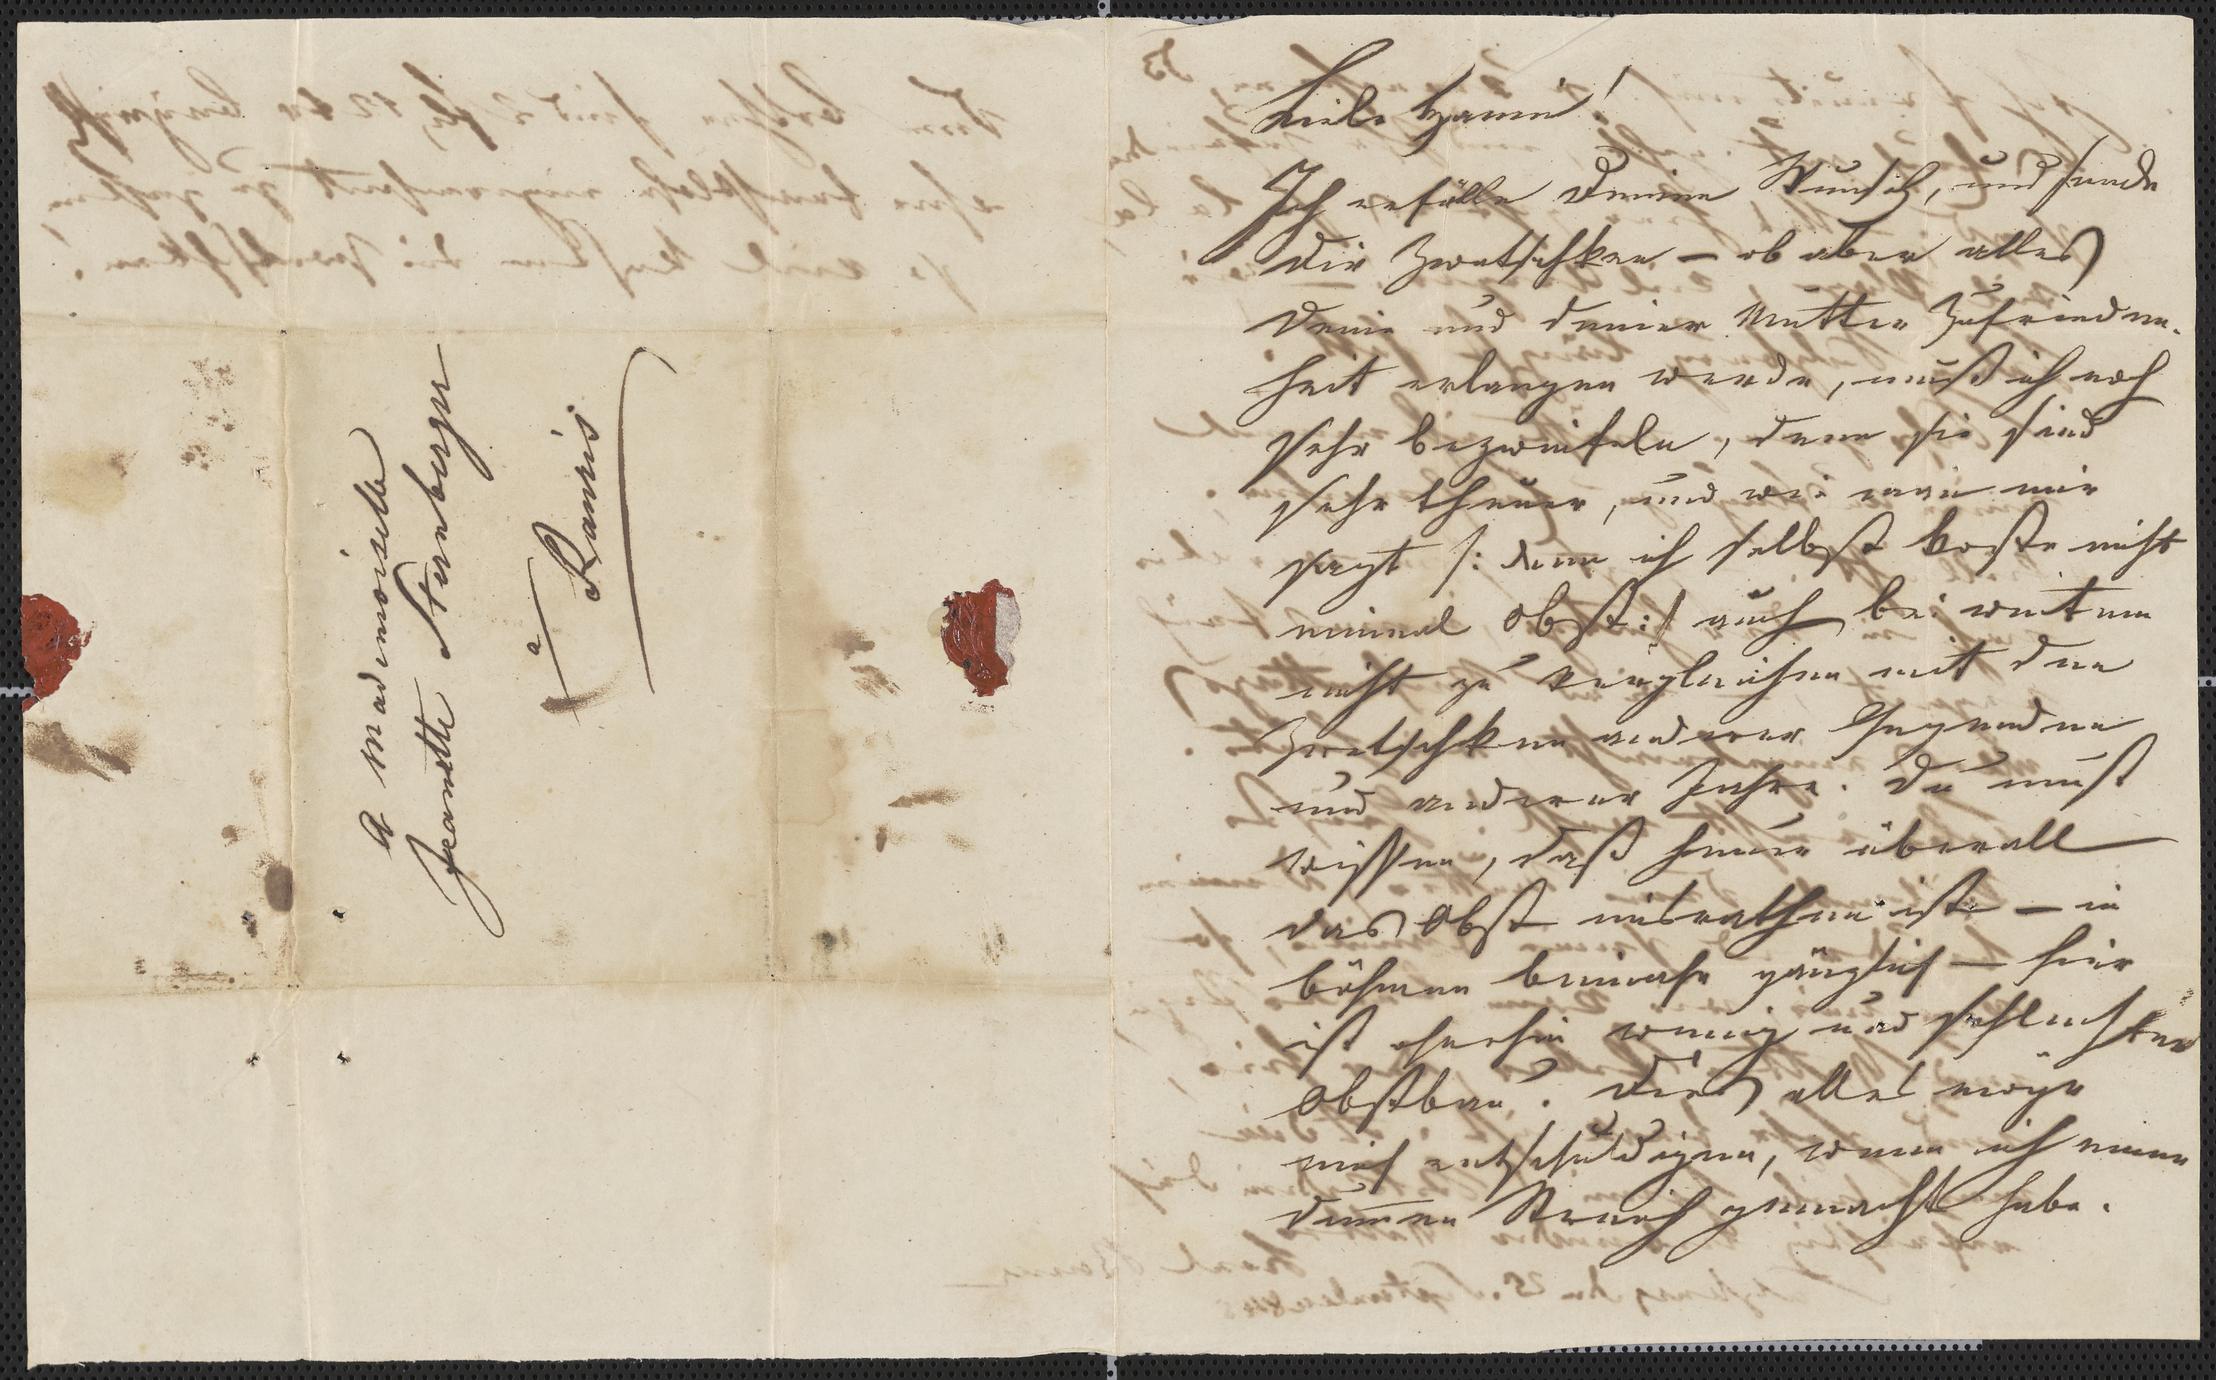 A Mademoiselle
Jeanette Sternberger
à Ramis
Liebe Hanni!
Ich erfülle Deinen Wunsch, und sende
Dir Zwetschken – ob aber alles
Deine und deiner Mutter Zufrieden-
heit erlangen werde, muß ich noch
sehr bezweifeln, denn sie sind
sehr theuer, und wie man mir
sagt /: denn ich selbst koste nicht
einmal Obst :/ auch bei weitem
nicht zu vergleichen mit den
Zwetschken anderer Gegenden
und anderer Jahre. Du mußt
wissen, daß heuer überall
das Obst misrathen ist – in
Böhmen beinahe gänzlich – hier
ist ohnehin wenig und schlechter
Obstbau. Dies alles möge
mich entschuldigen, wenn ich einen
dummen Streich gemacht habe.